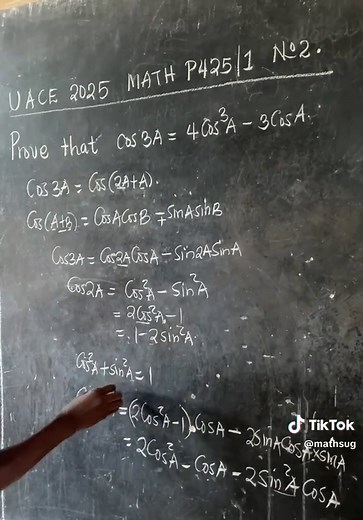 UACE 2025 MATH P425/1 No2.
Prove that Cos3A = 4Cos³A - 3CosA.
Cos3A = Cos(2A+A).
Cos(A+B) = CosACosB ∓ SinASinB
Cos3A = Cos2ACosA - Sin2ASinA
Cos2A = Cos²A - Sin²A
= 2Cos²A - 1
= 1 - 2Sin²A.
Cos²A + Sin²A = 1
= (2Cos²A - 1).CosA - 2SinACosA×SinA
= 2Cos²A - CosA - 2Sin²A CosA
TikTok
@mathsug